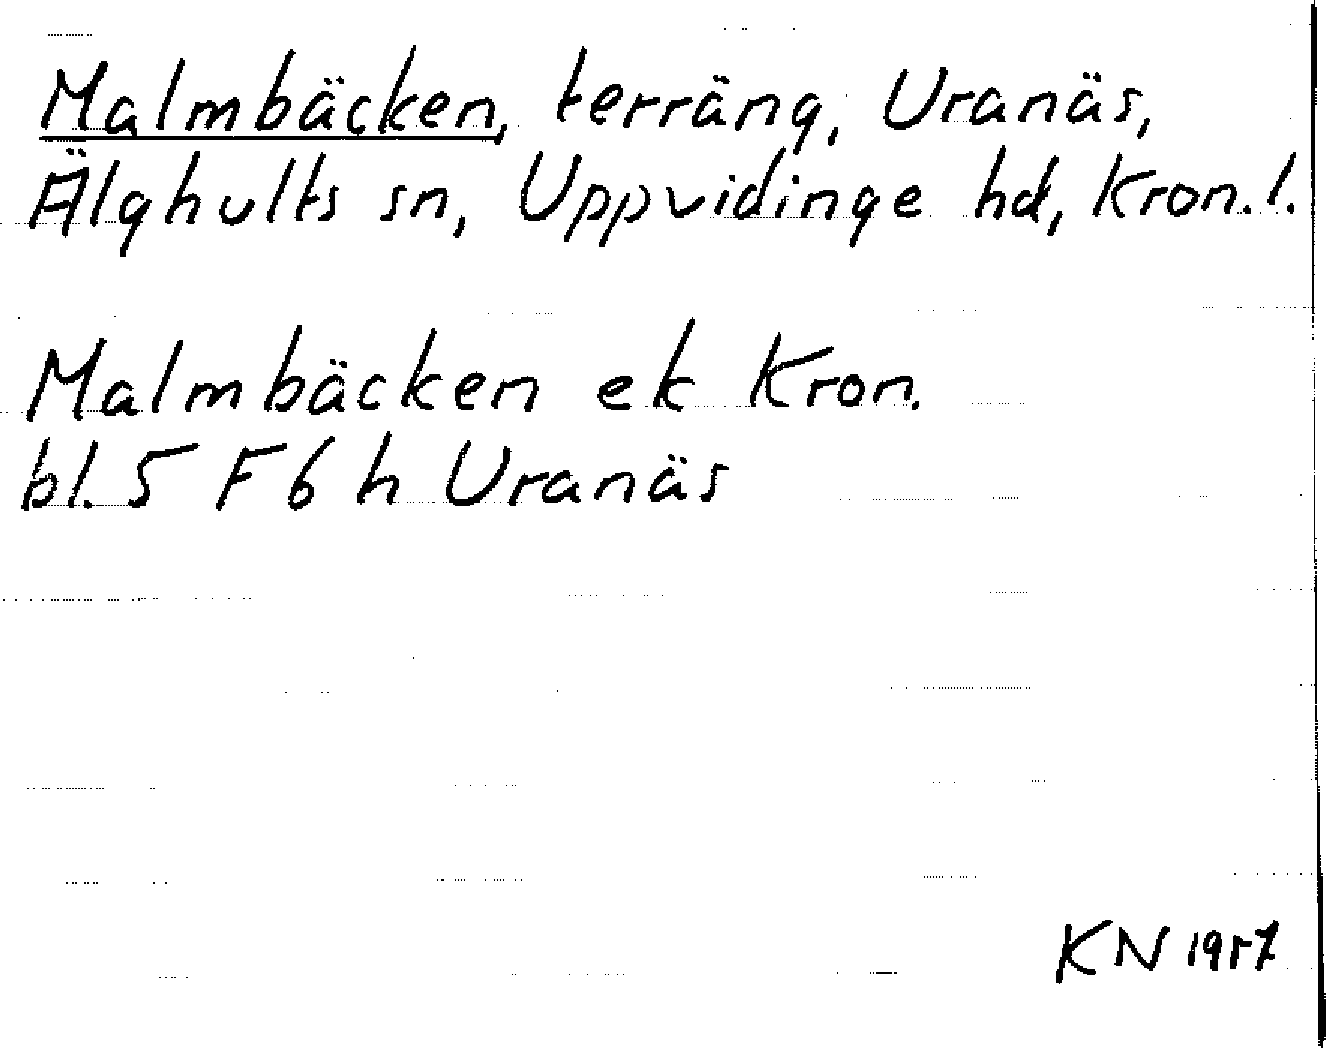 Malmbäcken, terräng, Uranäs,
Älghults sn, Uppvidinge hd, Kron.l.
Malmbäcken ek Kron.
bl. 5 F 6 h Uranäs
KN 1957